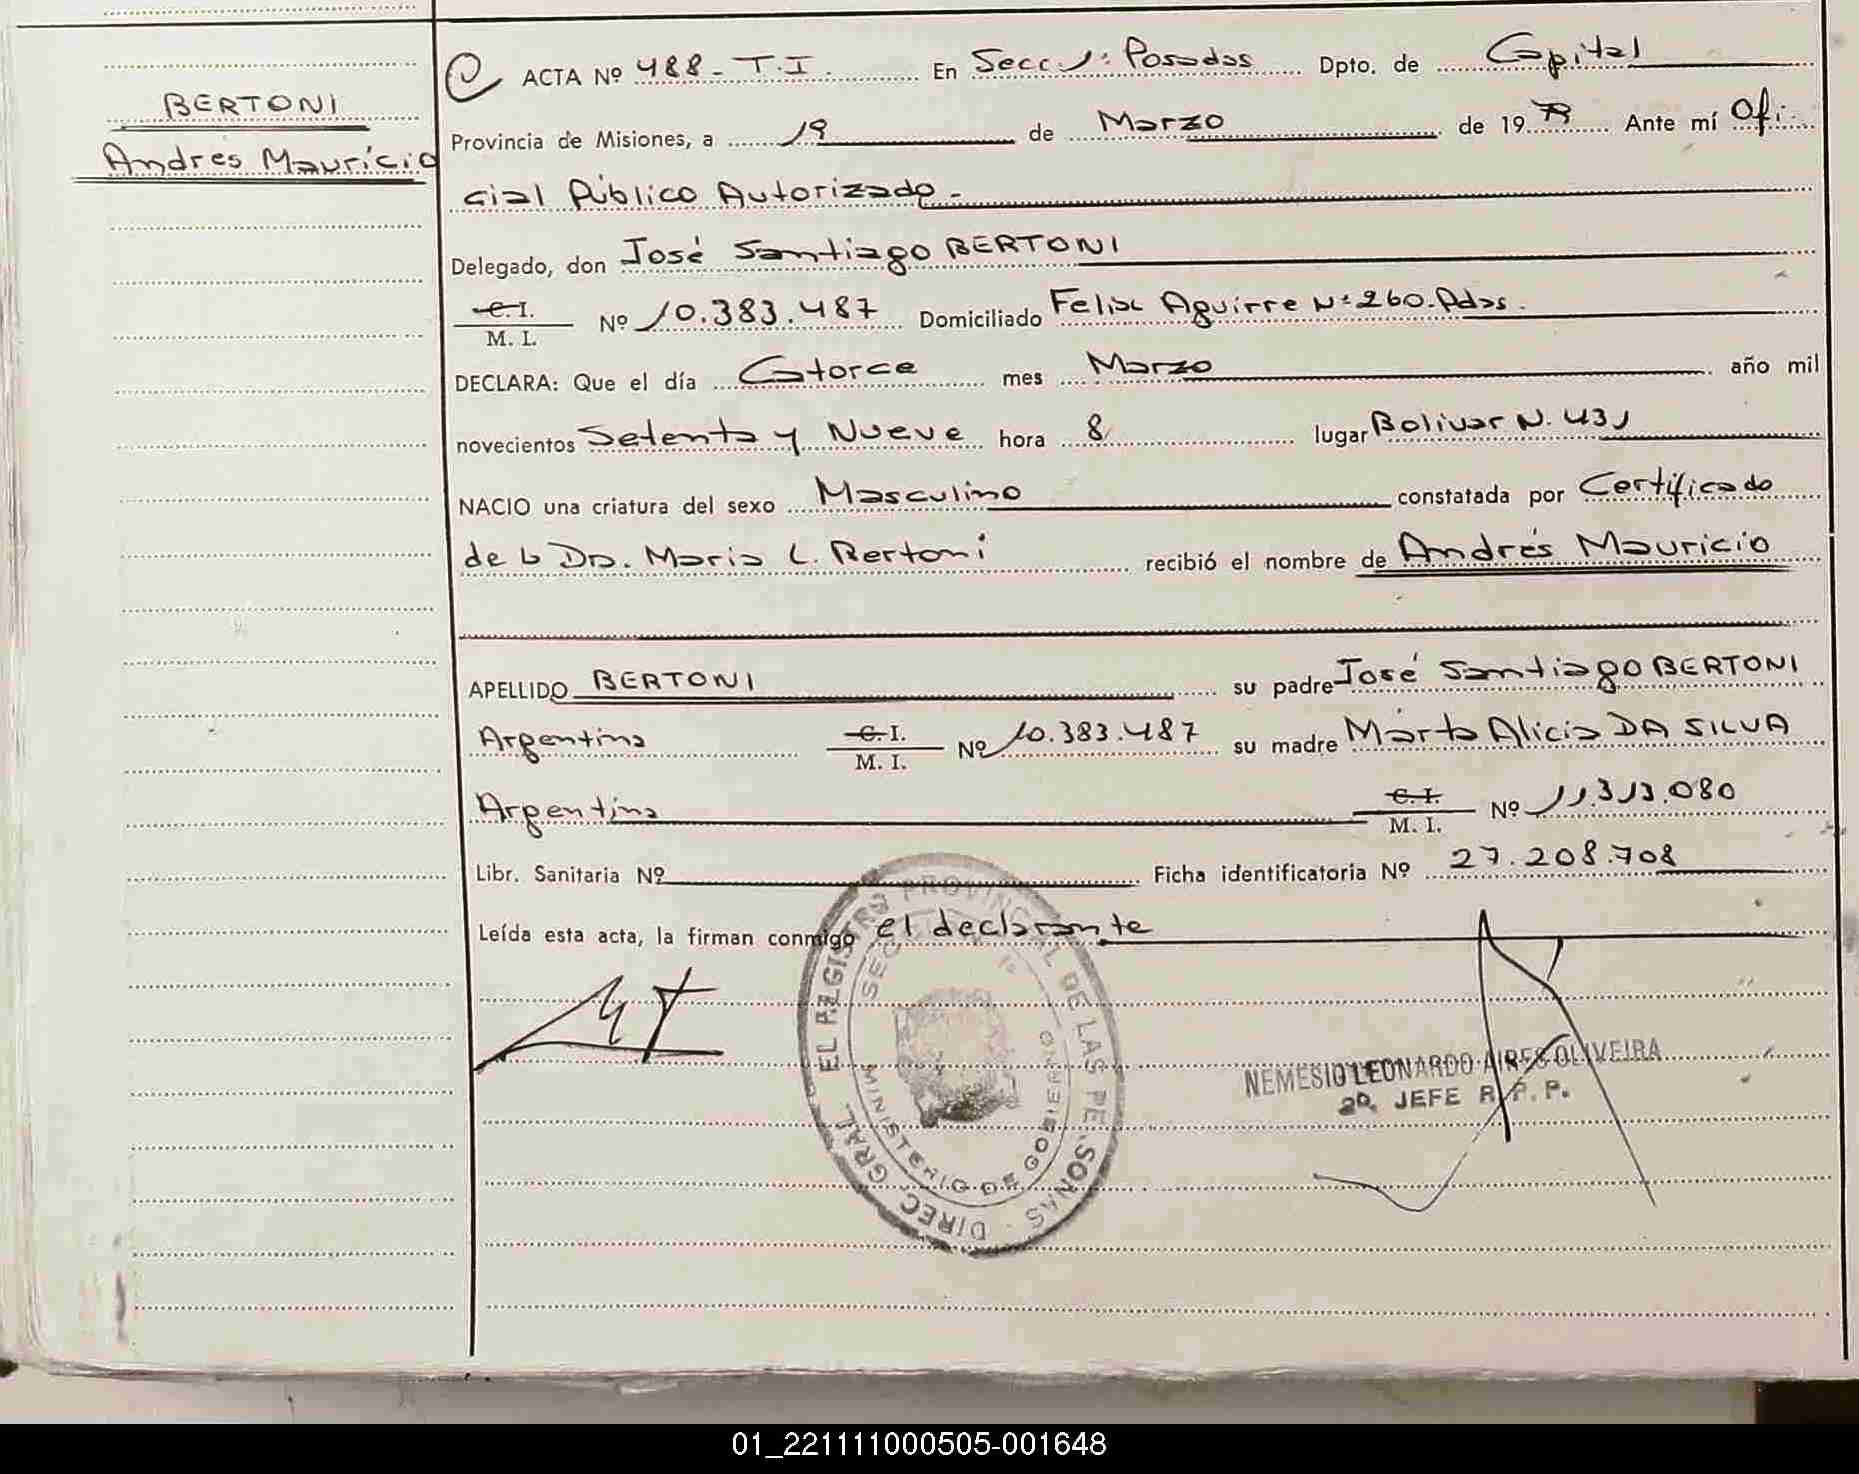 BERTONI
Andrés Mauricio
ACTA Nº 488 - T.I. En Secc 1ª Posadas Dpto. de Capital
Provincia de Misiones, a 19 de Marzo de 1979 Ante mí Ofi-
cial Público Autorizado.-
Delegado, don José Santiago BERTONI
C.I.
M. I. Nº 10.383.487 Domiciliado Felix Aguirre Nº 260. Pdas.
DECLARA: Que el día Catorce mes Marzo año mil
novecientos Setenta y Nueve hora 8 lugar Bolivar N. 431
NACIO una criatura del sexo Masculino constatada por Certificado
de la Dra. Maria L. Bertoni recibió el nombre de Andrés Mauricio
APELLIDO BERTONI su padre José Santiago BERTONI
Argentina C.I.
M. I. Nº 10.383.487 su madre Marta Alicia DA SILVA
Argentina C.I.
M. I. Nº 11.313.080
Libr. Sanitaria Nº Ficha identificatoria Nº 27.208.708
Leída esta acta, la firman conmigo el declarante
DIREC. GRAL. EL REGISTRO PROVINCIAL DE LAS PERSONAS
SECC 1ª
MINISTERIO DE GOBIERNO
NEMESIO LEONARDO AIRES OLIVEIRA
2º. JEFE R.P.P.
01_221111000505-001648